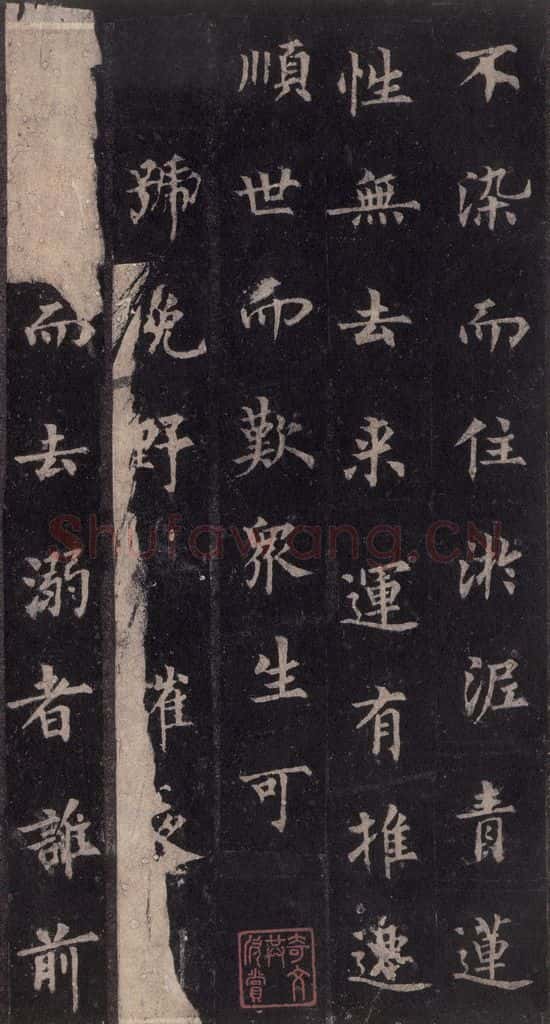 不染而住淤泥青蓮
性無去来運有推遷
順世而歎眾生可
號
而去溺者誰前
奇文共欣賞
Shufawang.CN